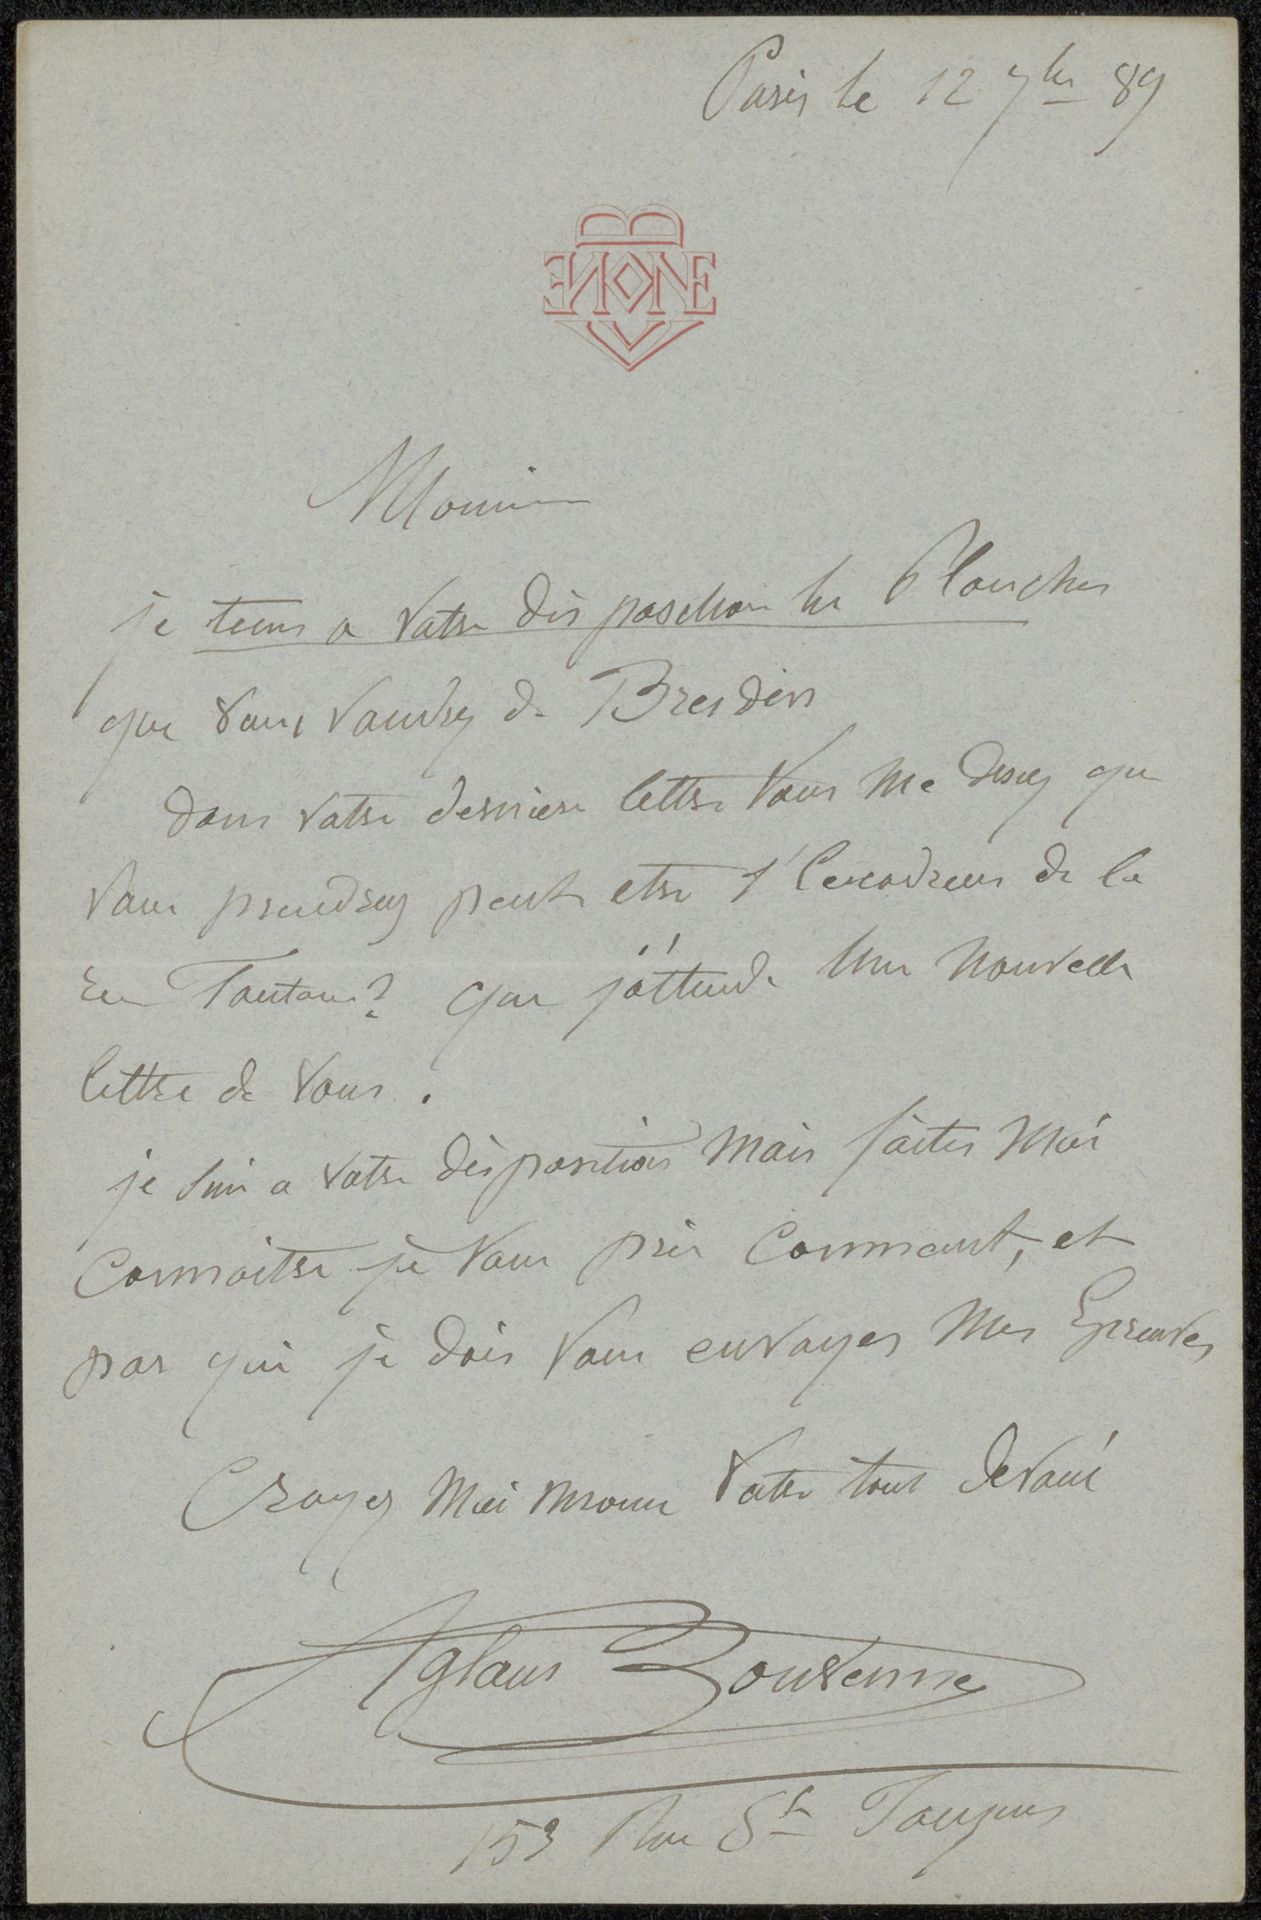 Paris le 12 7bre 89
BOUVENNE
Monsieur
je tiens a votre disposition les Planches
que vous voudrez de Bresdin
dans votre derniere lettre vous me disiez que
vous prendrez peut etre l' de la
que j'attende une nouvelle
lettre de vous.
je suis a votre disposition mais faites moi
connoitre je vous prie comment, et
par qui je dois vous envoyer mes Epreuves
Croyez moi votre tout devoué
Aglaus Bouvenne
153 Rue St Jacques